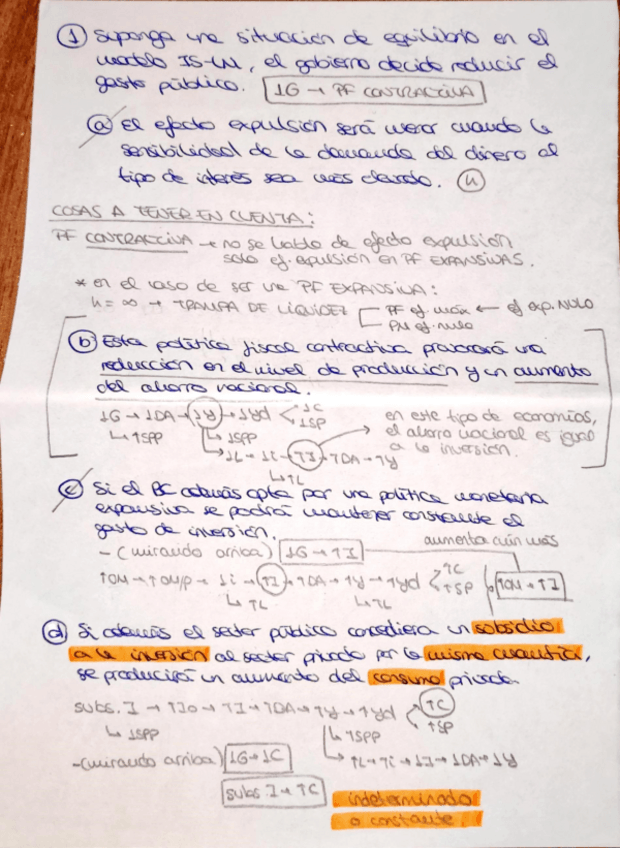 ① Suponga una situación de equilibrio en el
modelo IS-LM, el gobierno decide reducir el
gasto público. ↓G → PF CONTRACTIVA
ⓐ El efecto expulsión será menor cuando la
sensibilidad de la demanda del dinero al
tipo de interés sea más elevada. (h)
COSAS A TENER EN CUENTA:
PF CONTRACTIVA → no se habla de efecto expulsión
solo ef. expulsión en PF EXPANSIVAS.
* en el caso de ser una PF EXPANSIVA:
h = ∞ → TRAMPA DE LIQUIDEZ PF ef. máx ← ef exp. NULO
PM ef. nula
ⓑ Esta política fiscal contractiva provocará una
reducción en el nivel de producción y un aumento
del ahorro nacional.
↓G → ↓DA → ↓Y → ↓Yd < ↓C
↳ ↑SPP ↳ ↓SPP ↓SP
↳ ↓L → ↓i → ↑I → ↑DA → ↑Y
↳ ↑L
en este tipo de economías,
el ahorro nacional es igual
a la inversión.
ⓒ Si el BC además opta por una política monetaria
expansiva se podrá mantener constante el
gasto de inversión.
- (mirando arriba) ↓G → ↑I aumenta aún más
↑OM → ↑OM/P → ↓i → ↑I → ↑DA → ↑Y → ↑Yd < ↑C ↑OM → ↑I
↑SP
↳ ↑L ↳ ↑L
ⓓ Si además el sector público concediera un subsidio
a la inversión al sector privado por la misma cuantía,
se produciría un aumento del consumo privado.
subs. I → ↑Io → ↑I → ↑DA → ↑Y → ↑Yd < ↑C
↑SP
↳ ↓SPP ↳ ↑SPP
↳ ↑L → ↑i → ↓I → ↓DA → ↓Y
- (mirando arriba) ↓G → ↓C
subs. I → ↑C
indeterminado
o constante